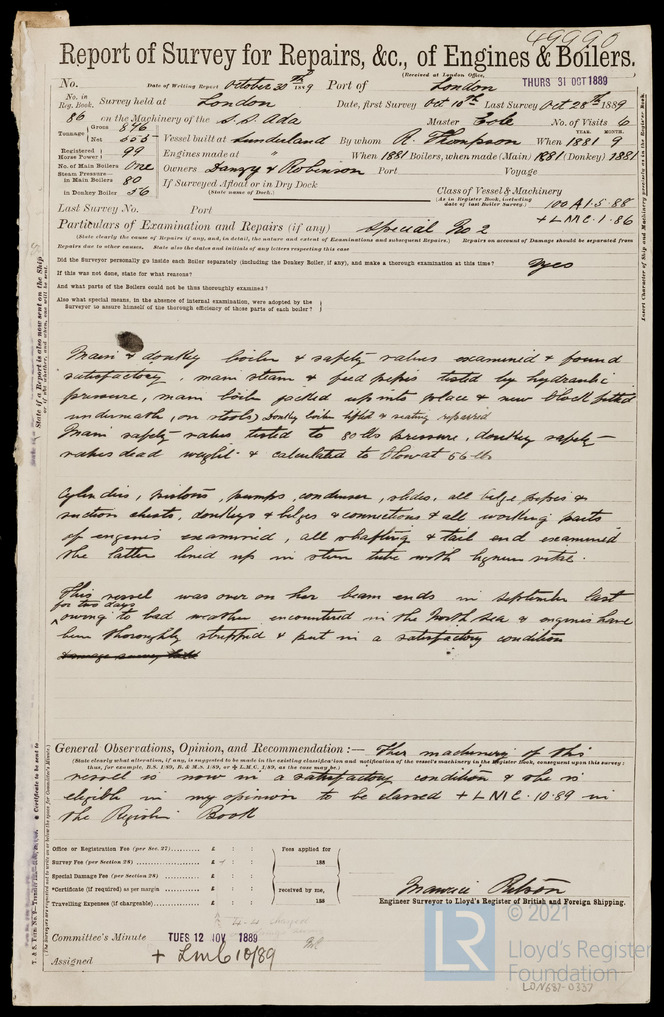 49990
Report of Survey for Repairs, &c., of Engines & Boilers.
(Received at London Office,
No. Date of Writing Report October 30th 1889 Port of London THURS 31 OCT 1889
No. in Reg. Book. Survey held at London Date, first Survey Oct 10th Last Survey Oct 28th 1889
86 on the Machinery of the S.S. Ada Master Cole No. of Visits 6
Tonnage Gross 896 Net 555 Vessel built at Sunderland By whom R. Thompson When YEAR. 1881 MONTH. 9
Registered Horse Power 99 Engines made at " When 1881 Boilers, when made (Main) 1881 (Donkey) 1881
No. of Main Boilers One Owners & Robinson Port Voyage
Steam Pressure— in Main Boilers 80 If Surveyed Afloat or in Dry Dock
(State name of Dock.)
in Donkey Boiler 56 Class of Vessel & Machinery
(As in Register Book, including date of last Boiler Survey.) 100A1.5.88
Last Survey No. Port + LMC.1.86
Particulars of Examination and Repairs (if any) Special No 2
(State clearly the cause of Repairs if any, and, in detail, the nature and extent of Examinations and subsequent Repairs.) Repairs on account of Damage should be separated from
Repairs due to other causes. State also the dates and initials of any letters respecting this case
Did the Surveyor personally go inside each Boiler separately (including the Donkey Boiler, if any), and make a thorough examination at this time? yes
If this was not done, state for what reasons?
And what parts of the Boilers could not be thus thoroughly examined?
Also what special means, in the absence of internal examination, were adopted by the
Surveyor to assure himself of the thorough efficiency of those parts of each boiler?
Main & donkey boiler & safety valves examined & found
satisfactory, main steam & feed pipes tested by hydraulic
pressure, main boiler jacked up into place & new block fitted
underneath, (on stools) Donkey boiler lifted & seating repaired
Main safety valves tested to 80 lbs pressure, donkey safety-
valves dead weight & calculated to blow at 56 lbs
Cylinders, pistons, pumps, condenser, slides, all bilge pipes &
suction chests, donkeys & bilges & connections & all working parts
of engines examined, all shafting & tail end examined
the latter lined up in stern tube with lignum vitae.
This vessel was over on her beam ends in September last
for two days
owing to bad weather encountered in the North Sea & engines have
been thoroughly stripped & put in a satisfactory condition
General Observations, Opinion, and Recommendation :— The machinery of this
(State clearly what alteration, if any, is suggested to be made in the existing classification and notification of the vessel's machinery in the Register Book, consequent upon this survey:
thus, for example, B.S. 1/89, B. & M.S. 1/89, or + L.M.C. 1/89, as the case may be.)
vessel is now in a satisfactory condition & she is
eligible in my opinion to be classed + LMC.10.89 in
the Register Book
Office or Registration Fee (per Sec. 27) £ : :
Fees applied for
Survey Fee (per Section 28) £ : : 188
Special Damage Fee (per Section 28) £ : :
*Certificate (if required) as per margin £ : : received by me,
Travelling Expenses (if chargeable) £ : : 188
Maurice
Engineer Surveyor to Lloyd's Register of British and Foreign Shipping.
Committee's Minute TUES 12 NOV 1889
Assigned + LMC 10/89
© 2021
LR
Lloyd's Register
Foundation
LON687-0337